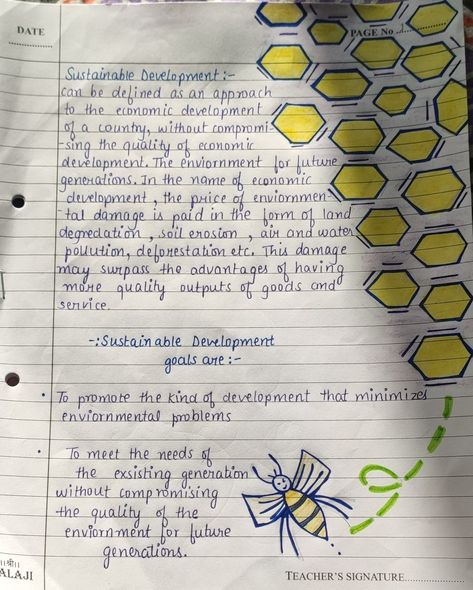 DATE
PAGE No 1
Sustainable Development:-
can be defined as an approach
to the economic development
of a country, without compromi-
-sing the quality of economic
development. The enviornment for future
generations. In the name of economic
development, the price of enviornmen-
-tal damage is paid in the form of land
degredation, soil erosion, air and water
pollution, deforestation etc. This damage
may surpass the advantages of having
more quality outputs of goods and
service.
-:Sustainable Development
goals are:-
• To promote the kind of development that minimizes
enviornmental problems
• To meet the needs of
the exsisting generation
without compromising
the quality of the
enviornment for future
generations.
॥श्री॥
ALAJI
TEACHER'S SIGNATURE